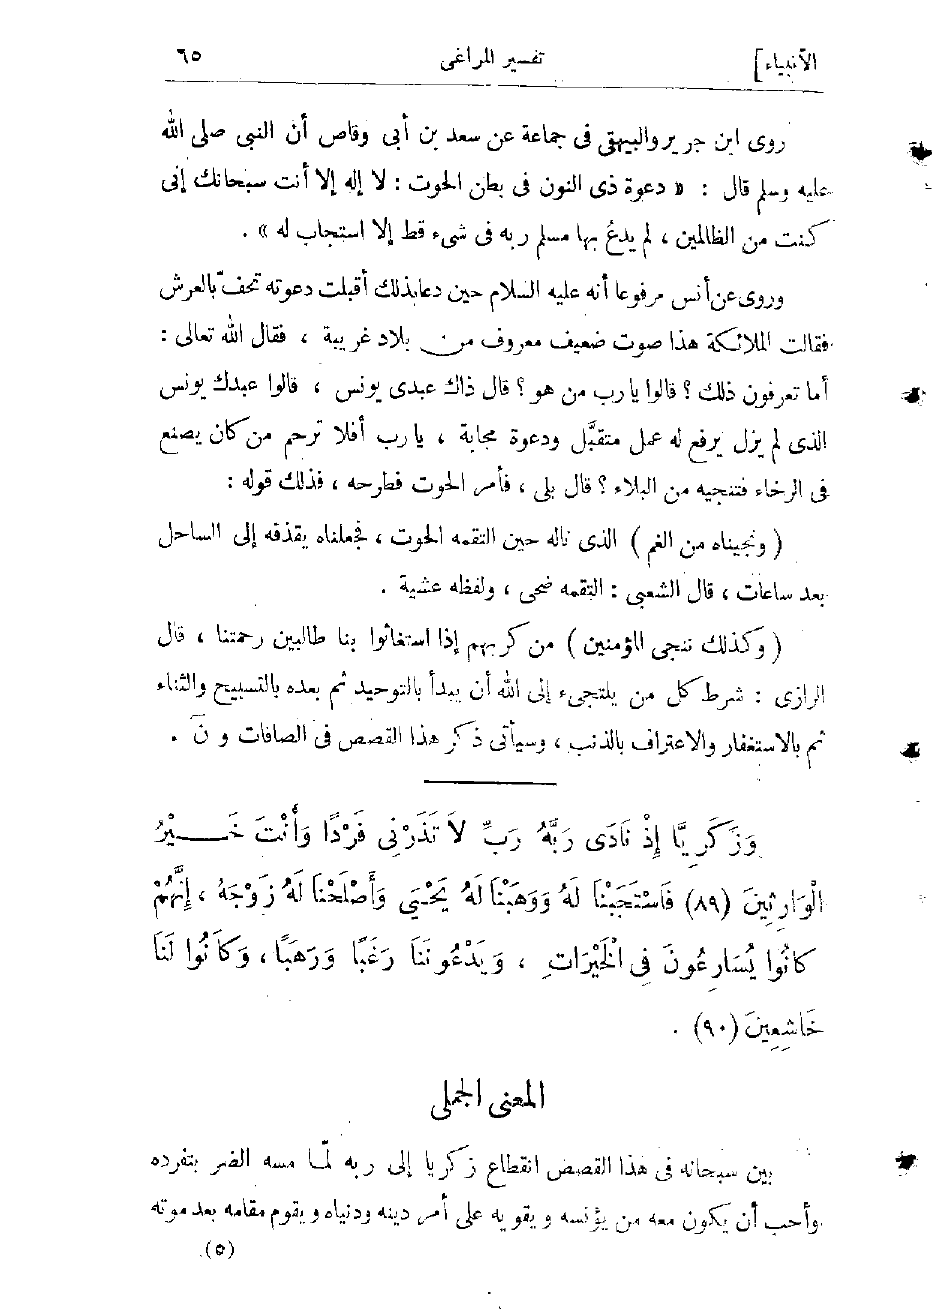 الأنبياء]
تفسير المراغى
٦٥
روى ابن جرير والبيهقى فى جماعة عن سعد بن أبى وقاص أن النبى صلى الله
عليه وسلم قال : « دعوة ذى النون فى بطن الحوت : لا إله إلا أنت سبحانك إنى
كنت من الظالمين ، لم يدعُ بها مسلم ربه فى شىء قط إلا استجاب له » .
وروى عن أنس مرفوعا أنه عليه السلام حين دعا بذلك أقبلت دعوته تحفّ بالعرش
فقالت الملائكة هذا صوت ضعيف معروف من بلاد غريبة ، فقال الله تعالى :
أما تعرفون ذلك ؟ قالوا يا رب من هو ؟ قال ذاك عبدى يونس ، قالوا عبدك يونس
الذى لم يزل يرفع له عمل متقبَّل ودعوة مجابة ، يا رب أفلا ترحم من كان يصنع
فى الرخاء فتنجيه من البلاء ؟ قال بلى ، فأمر الحوت فطرحه ، فذلك قوله :
( ونجيناه من الغم ) الذى ناله حين التقمه الحوت ، فجعلناه يقذفه إلى الساحل
بعد ساعات ، قال الشعبى : التقمه ضحى ، ولفظه عشية .
( وكذلك ننجى المؤمنين ) من كربهم إذا استغاثوا بنا طالبين رحمتنا ، قال
الرازى : شرط كل من يلتجىء إلى الله أن يبدأ بالتوحيد ثم بعده بالتسبيح والثناء
ثم بالاستغفار والاعتراف بالذنب ، وسيأتى ذكر هذا القصص فى الصافات و نَ .
وَزَكَرِيَّا إِذْ نَادَى رَبَّهُ رَبِّ لاَ تَذَرْنِى فَرْدًا وَأَنْتَ خَيْرُ
الْوَارِثِينَ (٨٩) فَاسْتَجَبْنَا لَهُ وَوَهَبْنَا لَهُ يَحْيَى وَأَصْلَحْنَا لَهُ زَوْجَهُ ، إِنَّهُمْ
كَانُوا يُسَارِعُونَ فِى الْخَيْرَاتِ ، وَيَدْعُونَنَا رَغَبًا وَرَهَبًا ، وَكَانُوا لَنَا
خَاشِعِينَ (٩٠) .
المعنى الجملى
بين سبحانه فى هذا القصص انقطاع زكريا إلى ربه لمّا مسه الضر بتفرده
وأحب أن يكون معه من يؤنسه ويقويه على أمر دينه ودنياه ويقوم مقامه بعد موته
(٥)